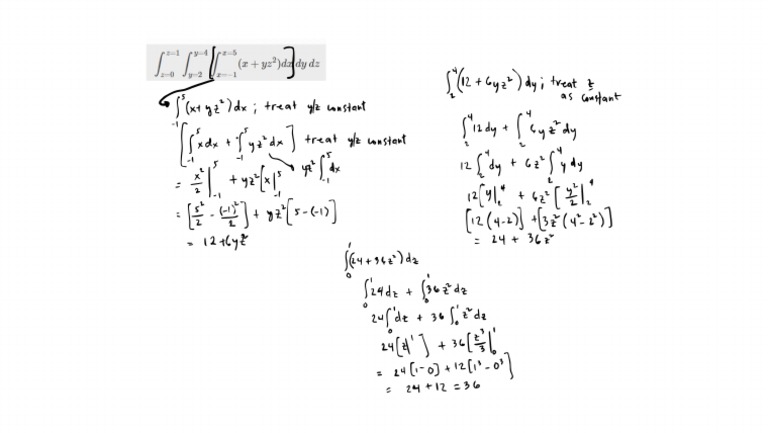 ∫_{z=0}^{z=1} ∫_{y=2}^{y=4} [∫_{x=-1}^{x=5} (x + yz²)dx] dy dz
∫_{-1}^{5} (x+yz²)dx ; treat y/z constant
[∫_{-1}^{5} xdx + ∫_{-1}^{5} yz²dx] treat y/z constant
yz² ∫_{-1}^{5} dx
= x²/2 |_{-1}^{5} + yz²[x|_{-1}^{5}
= [5²/2 - (-1)²/2] + yz²[5-(-1)]
= 12+6yz²
∫_{2}^{4} (12+6yz²)dy ; treat z
as constant
∫_{2}^{4} 12dy + ∫_{2}^{4} 6yz²dy
12∫_{2}^{4} dy + 6z²∫_{2}^{4} ydy
12[y|_{2}^{4} + 6z²[y²/2|_{2}^{4}
[12(4-2)] + [3z²(4²-2²)]
= 24 + 36z²
∫_{0}^{1} (24+36z²)dz
∫_{0}^{1} 24dz + ∫_{0}^{1} 36z²dz
24∫_{0}^{1} dz + 36∫_{0}^{1} z²dz
24[z|_{0}^{1}] + 36[z³/3|_{0}^{1}
= 24[1-0] + 12[1³-0³]
= 24+12 = 36